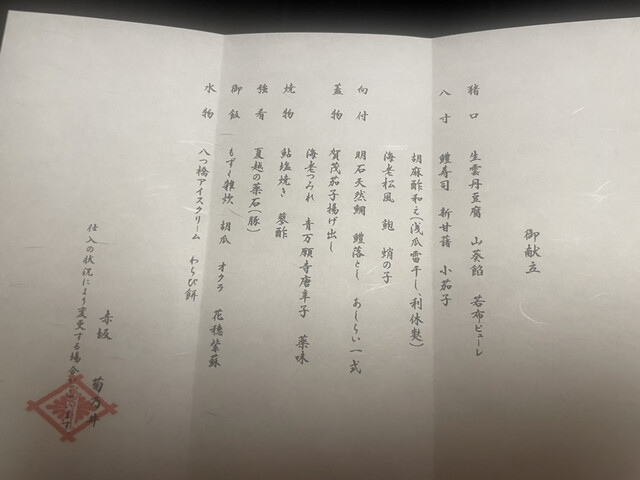 御献立
猪口 生雲丹豆腐 山葵餡 若布ピューレ
八寸 鱧寿司 新甘藷 小茄子
胡麻酢和え(浅瓜雷干し、利休麩)
海老松風 鮑 蛸の子
向付 明石天然鯛 鱧落とし あしらい一式
蓋物 賀茂茄子揚げ出し
海老つみれ 青万願寺唐辛子 薬味
焼物 鮎塩焼き 蓼酢
強肴 夏越の薬石(豚)
御飯 もずく雑炊 胡瓜 オクラ 花穂紫蘇
水物 八つ橋アイスクリーム わらび餅
赤坂 菊乃井
仕入の状況により変更する場合がございます